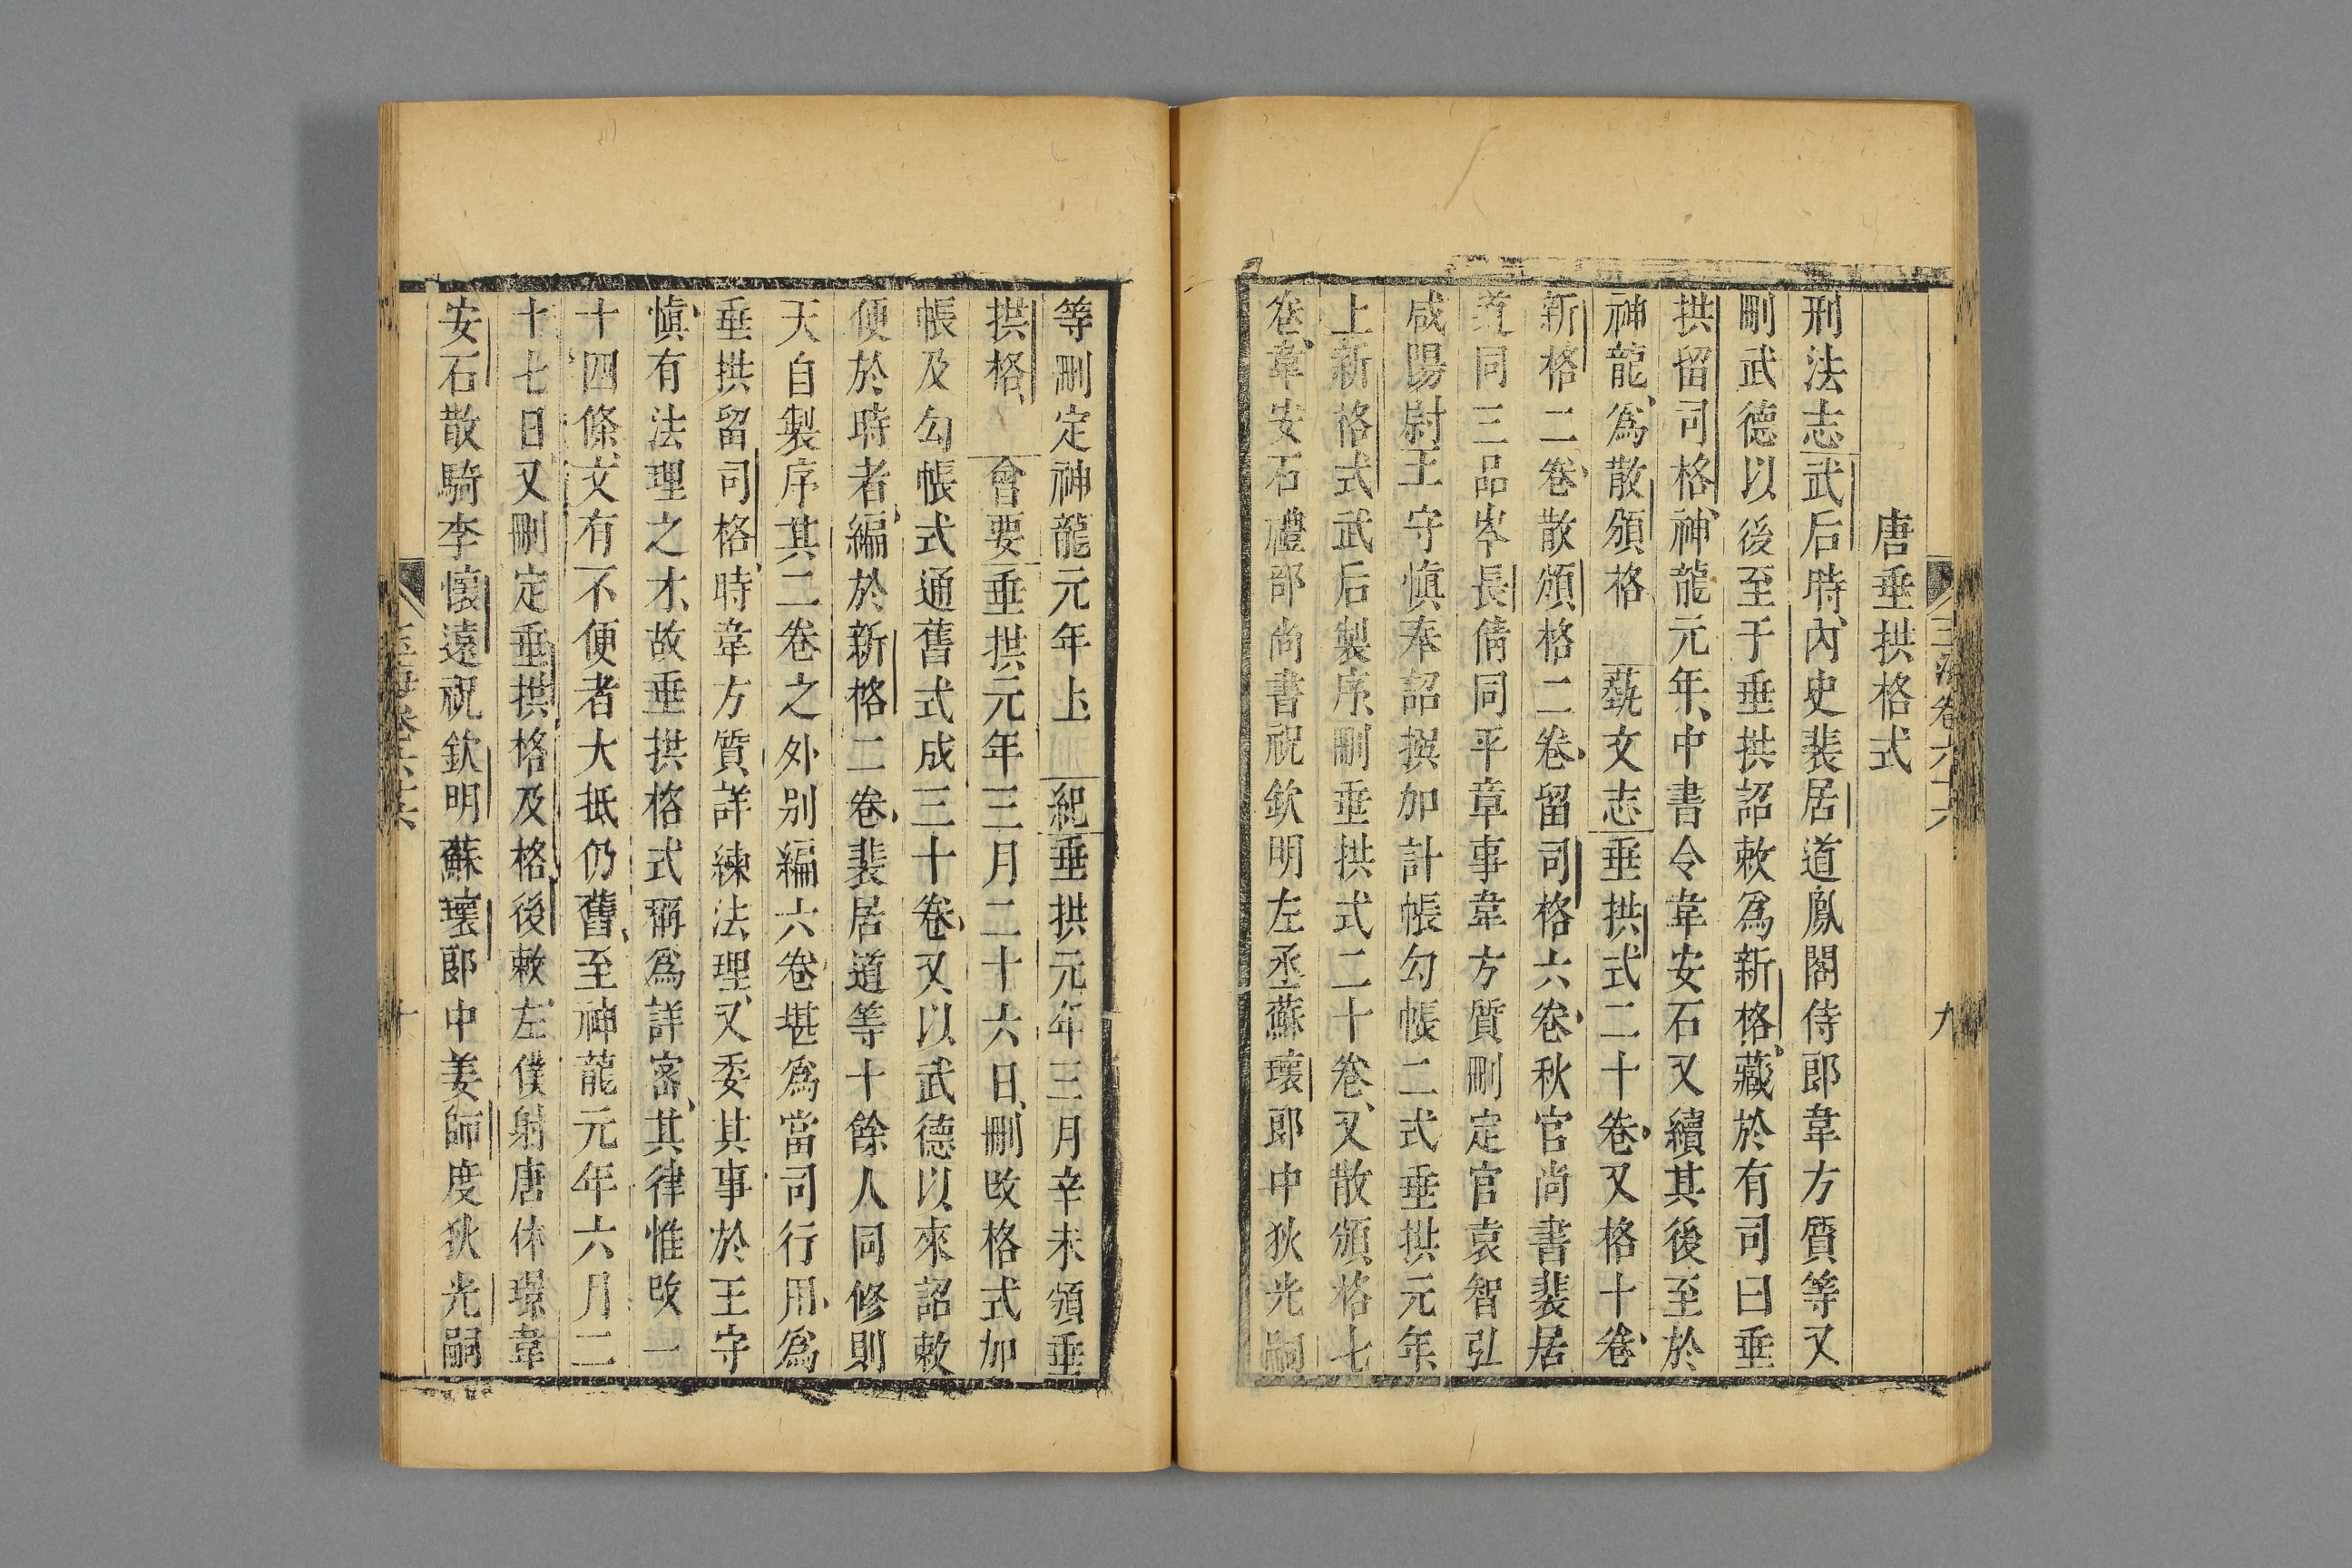 唐垂拱格式
刑法志武后時內史裴居道鳳閣侍郎韋方質等又
刪武德以後至于垂拱詔敕爲新格藏於有司曰垂
拱留司格神龍元年中書令韋安石又續其後至於
神龍爲散頒格 藝文志垂拱式二十卷又格十卷
新格二卷散頒格二卷留司格六卷秋官尚書裴居
同三品岑長倩同平章事韋方質刪定官袁智弘
咸陽尉王守愼奉詔撰加計帳勾帳二式垂拱元年
上新格式武后製序刪垂拱式二十卷又散頒格七
卷韋安石禮部尚書祝欽明左丞蘇瓌郎中狄光嗣
等刪定神龍元年上 紀垂拱元年三月辛未頒垂
拱格 會要垂拱元年三月二十六日刪改格式加
帳及勾帳式通舊式成三十卷又以武德以來詔敕
便於時者編於新格二卷裴居道等十餘人同修則
天自製序其二卷之外別編六卷堪爲當司行用爲
垂拱留司格時韋方質詳練法理又委其事於王守
愼有法理之才故垂拱格式稱爲詳審其律惟改一
十四條文有不便者大抵仍舊至神龍元年六月二
十七日又刪定垂拱格及格後敕左僕射唐休璟韋
安石散騎李懷遠祝欽明蘇瓌郎中姜師度狄光嗣
卷六六
九
十